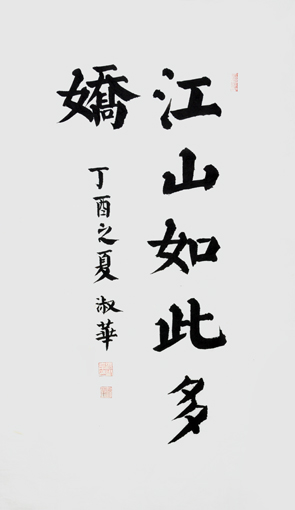 江山如此多
嬌
丁酉之夏 淑華